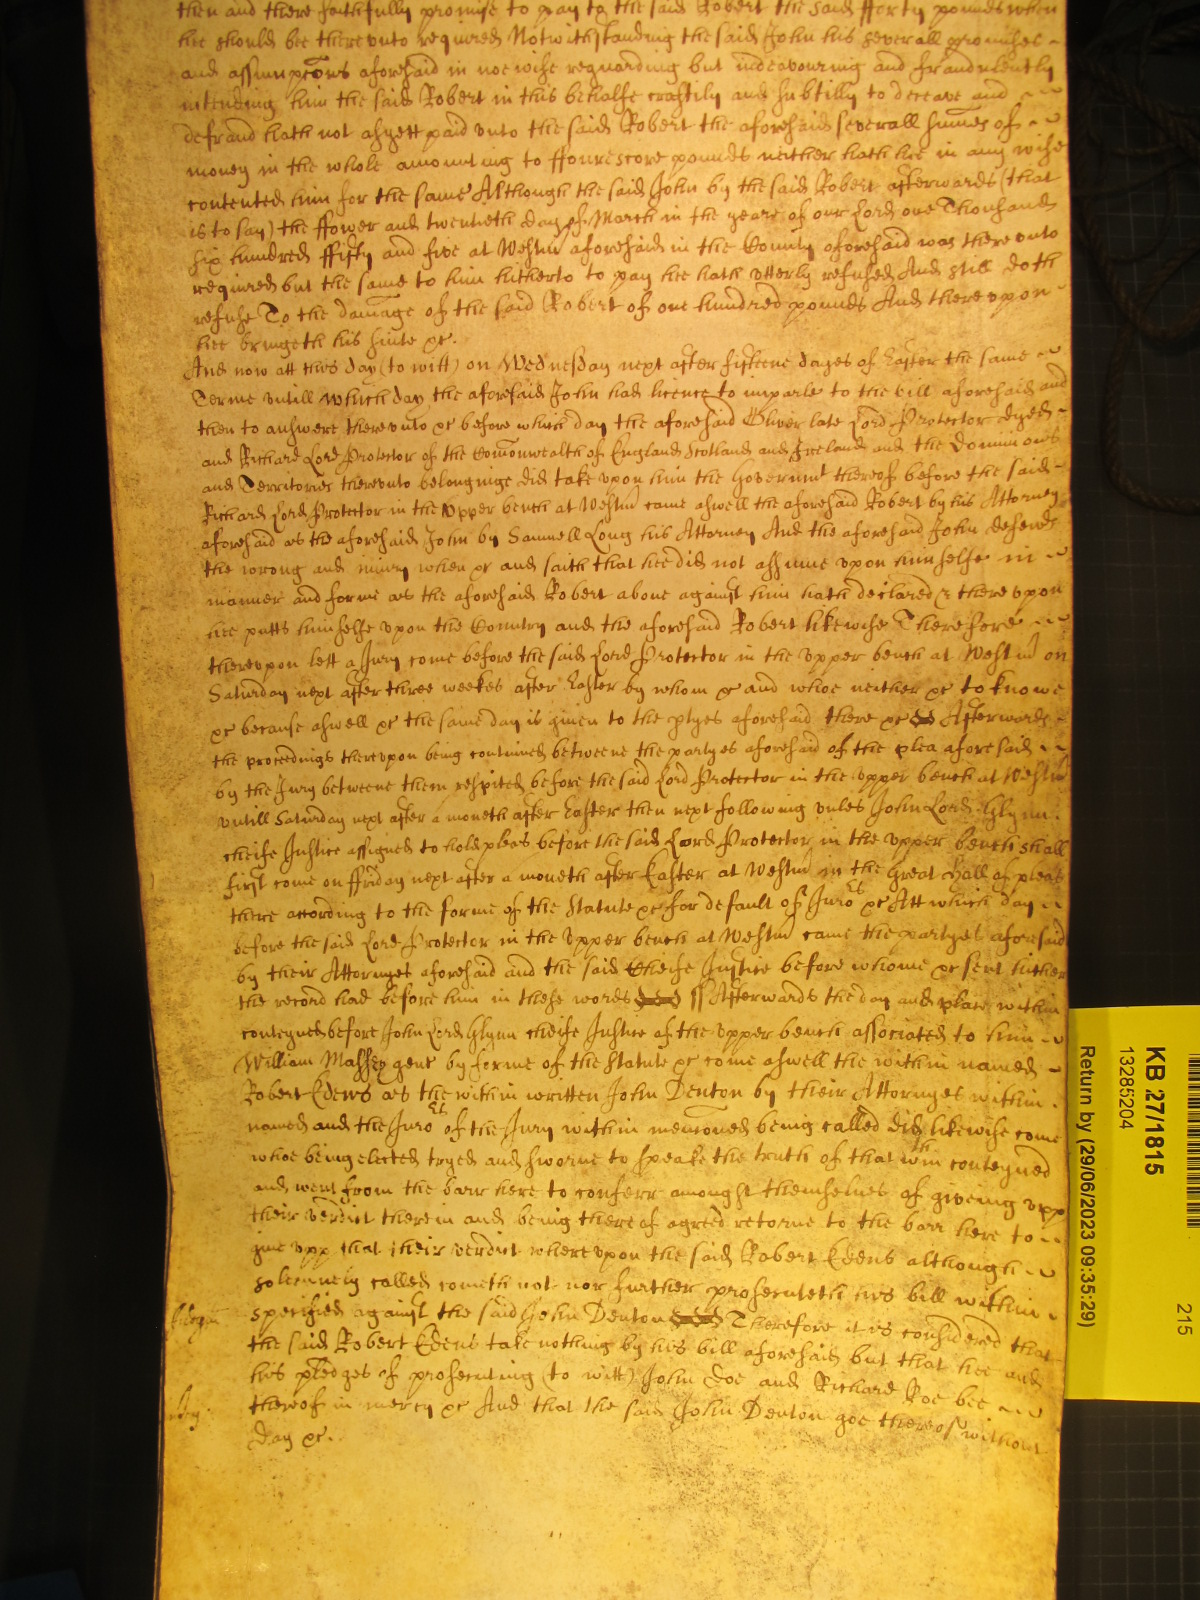 then and there faithfully promise to pay to the said Robert the said fforty pounds when
hee should bee therevnto required Notwithstanding the said John his severall promises
and assumpcons aforesaid in noe wise reguarding but indeavouring and fraudulently
intending him the said Robert in this behalfe craftily and subtilly to deceave and
defraud hath not as yett paid vnto the said Robert the aforesaid severall summes of
money in the whole amounting to ffourescore pounds neither hath hee in any wise
contented him for the same Although the said John by the said Robert afterwards (that
is to say) the ffower and twentieth day of March in the yeare of our Lord one Thousand
six hundred ffifty and five at Westm aforesaid in the County aforesaid was therevnto
required but the same to him hitherto to pay hee hath vtterly refused And still doth
refuse To the damage of the said Robert of one hundred pounds And therevpon
hee bringeth his suite &c.
And now att this day (to witt) on Wednesday next after fifteene dayes of Easter the same
Terme vntill which day the aforesaid John had licence to imparle to the bill aforesaid and
then to answere therevnto &c before which day the aforesaid Oliver late Lord Protector dyed
and Richard Lord Protector of the Comonwealth of England Scotland and Ireland and the Dominions
and Territories therevnto belonginge did take vpon him the Governmt thereof before the said
Richard Lord Protector in the vpper bench at Westm came aswell the aforesaid Robert by his Attorney
aforesaid as the aforesaid John by Samuell Long his Attorney And the aforesaid John defends
the wrong and iniury when &c and saith that hee did not assume vpon himselfe in
manner and forme as the aforesaid Robert above against him hath declared & therevpon
hee putts himselfe vpon the Country and the aforesaid Robert likewise Therefore
therevpon lett a Jury come before the said Lord Protector in the vpper bench at Westm on
Saturday next after three weekes after Easter by whom &c and whoe neither &c to knowe
&c because aswell &c the same day is given to the ptyes aforesaid there &c Afterwards
the proceedings therevpon being continued betweene the partyes aforesaid of the plea aforesaid
by the Jury betweene them respited before the said Lord Protector in the vpper bench at Westm
vntill Saturday next after a moneth after Easter then next following vnles John Lord Glynn
cheife Justice assigned to hold pleas before the said Lord Protector in the vpper bench shall
first come on ffriday next after a moneth after Easter at Westm in the great Hall of pleas
there according to the forme of the Statute &c for default of Juro rs &c Att which day
before the said Lord Protector in the vpper bench at Westm came the partyes aforesaid
by their Attornyes aforesaid and the said Cheife Justice before whome &c sent hither
the record had before him in these words ss Afterwards the day and place within
conteyned before John Lord Glynn cheife Justice of the vpper bench associated to him
William Massey gent by forme of the Statute &c come aswell the within named
Robert Edens as the within written John Denton by their Attornyes within
named and the Juro rs of the Jury within mencioned being called did likewise come
whoe being elected tryed and sworne to speake the truth of that wth in conteyned
and went from the barr here to conferr amongst themselves of giveing vpp
their verdict therein and being thereof agreed retorne to the barr here to
give vpp that their verdict wherevpon the said Robert Edens although
solemnely called cometh not nor further prosecuteth his bill within
specified against the said John Denton Therefore it is considered that
the said Robert Edens take nothing by his bill aforesaid but that hee and
his pledges of prosecuting (to witt) John Doe and Richard Roe bee
thereof in mercy &c And that the said John Denton goe thereof without
day &c.
KB 27/1815
13285204
Return by (29/06/2023 09:35:29)
215